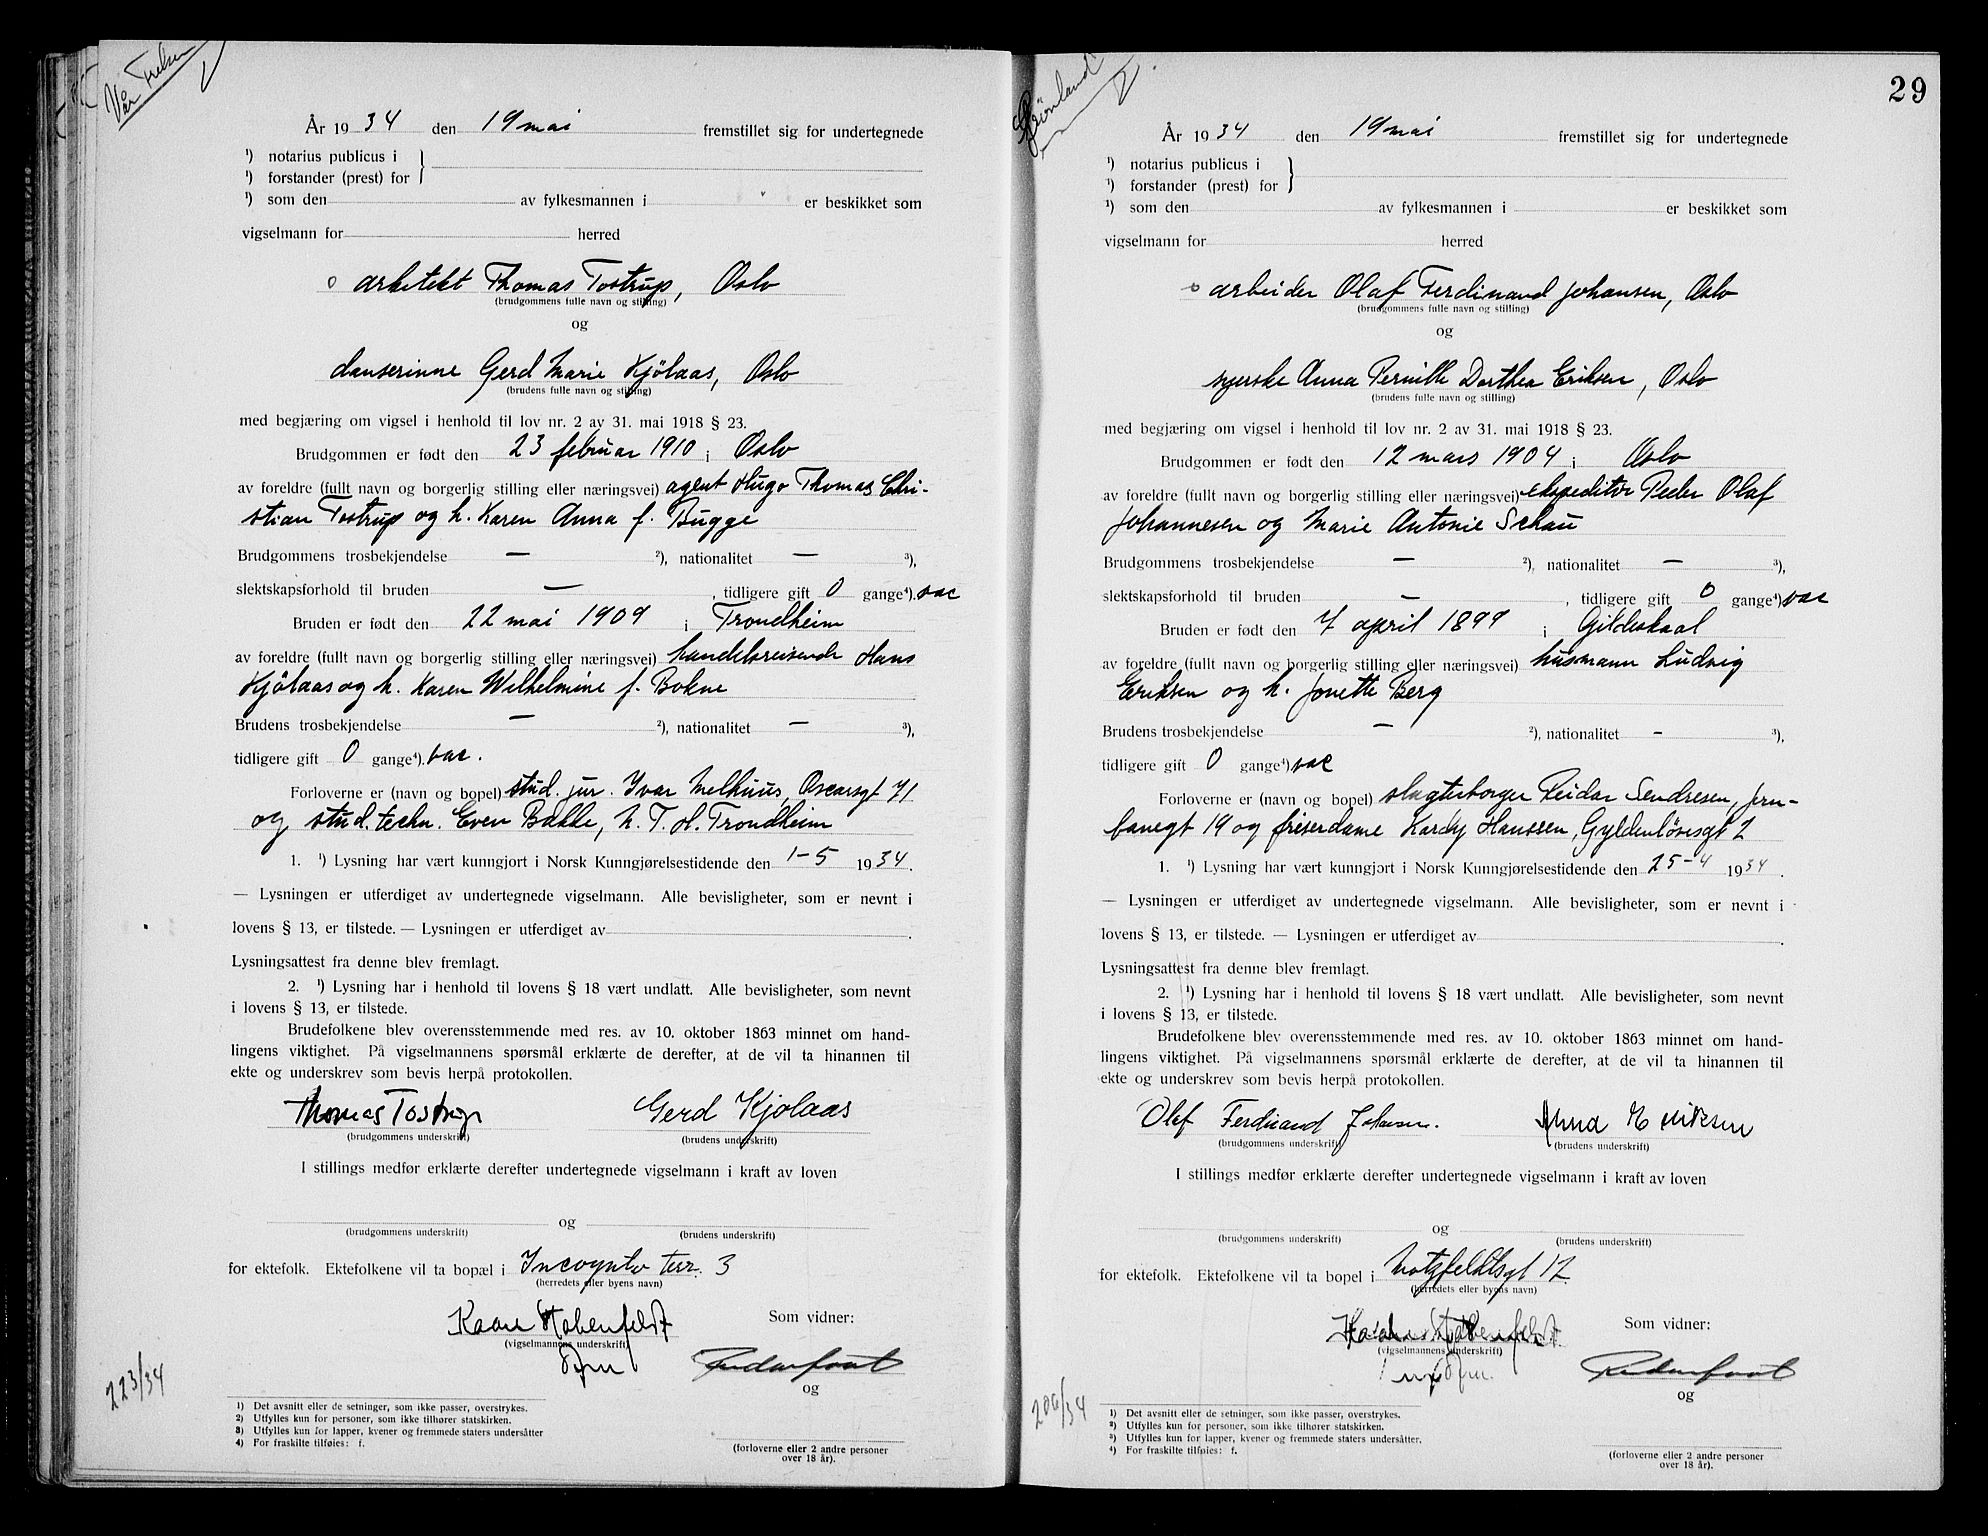 Vår Frelser
År 1934 den 19 mai fremstillet sig for undertegnede
¹) notarius publicus i
¹) forstander (prest) for
¹) som den av fylkesmannen i er beskikket som
vigselmann for herred
o arkitekt Thomas Tostrup, Oslo
(brudgommens fulle navn og stilling)
og
danserinne Gerd Marie Kjölaas, Oslo
(brudens fulle navn og stilling)
med begjæring om vigsel i henhold til lov nr. 2 av 31. mai 1918 § 23.
Brudgommen er født den 23 februar 1910 i Oslo
av foreldre (fullt navn og borgerlig stilling eller næringsvei) agent Hugo Thomas Chri-
stian Tostrup og h. Karen Anna f. Bugge
Brudgommens trosbekjendelse — ²), nationalitet — ³),
slektskapsforhold til bruden — , tidligere gift 0 gange⁴). vac
Bruden er født den 22 mai 1909 i Trondheim
av foreldre (fullt navn og borgerlig stilling eller næringsvei) handelsreisende Hans
Kjölaas og h. Karen Wilhelmine f. Bokne
Brudens trosbekjendelse — ²), nationalitet — ³),
tidligere gift 0 gange⁴). vac.
Forloverne er (navn og bopel) stud. jur. Ivar Melhuus, Oscarsgt 71
og stud. techn. Even Bakke, N. T. H. Trondheim
1. ¹) Lysning har vært kunngjort i Norsk Kunngjørelsestidende den 1-5 1934.
— Lysningen er utferdiget av undertegnede vigselmann. Alle bevisligheter, som er nevnt i
lovens § 13, er tilstede. — Lysningen er utferdiget av .
Lysningsattest fra denne blev fremlagt.
2. ¹) Lysning har i henhold til lovens § 18 vært undlatt. Alle bevisligheter, som nevnt
i lovens § 13, er tilstede.
Brudefolkene blev overensstemmende med res. av 10. oktober 1863 minnet om hand-
lingens viktighet. På vigselmannens spørsmål erklærte de derefter, at de vil ta hinannen til
ekte og underskrev som bevis herpå protokollen.
Thomas Tostrup Gerd Kjolaas
(brudgommens underskrift) (brudens underskrift)
I stillings medfør erklærte derefter undertegnede vigselmann i kraft av loven
og
(brudgommens underskrift) (brudens underskrift)
for ektefolk. Ektefolkene vil ta bopæl i Incognito terr. 3
(herredets eller byens navn)
Kaare Hobenfeldt Som vidner:
(vigselmannens underskrift)
og
223/34
1) Det avsnitt eller de setninger, som ikke passer, overstrykes.
2) Utfylles kun for personer, som ikke tilhører statskirken.
3) Utfylles kun for lapper, kvener og fremmede staters undersåtter
4) For fraskilte tilføies: f.
(forloverne eller 2 andre personer
over 18 år).
29
Grönland
År 1934 den 19 mai fremstillet sig for undertegnede
¹) notarius publicus i
¹) forstander (prest) for
¹) som den av fylkesmannen i er beskikket som
vigselmann for herred
o arbeider Olaf Ferdinand Johansen, Oslo
(brudgommens fulle navn og stilling)
og
syerske Anna Pernille Dorthea Eriksen, Oslo
(brudens fulle navn og stilling)
med begjæring om vigsel i henhold til lov nr. 2 av 31. mai 1918 § 23.
Brudgommen er født den 12 mars 1904 i Oslo
av foreldre (fullt navn og borgerlig stilling eller næringsvei) ekspeditör Peder Olaf
Johannesen og Marie Antonie Schau
Brudgommens trosbekjendelse — ²), nationalitet — ³),
slektskapsforhold til bruden — , tidligere gift 0 gange⁴) vac
Bruden er født den 7 april 1899 i Gildeskaal
av foreldre (fullt navn og borgerlig stilling eller næringsvei) husmann Ludvig
Eriksen og h. Jonette Berg
Brudens trosbekjendelse — ²), nationalitet — ³),
tidligere gift 0 gange⁴) vac
Forloverne er (navn og bopel) slagterborger Reidar Sendresen, Jern-
banegt 19 og friserdame Hardy Hanssen, Gyldenlövesgt 2
1. ¹) Lysning har vært kunngjort i Norsk Kunngjørelsestidende den 25-4 1934.
— Lysningen er utferdiget av undertegnede vigselmann. Alle bevisligheter, som er nevnt i
lovens § 13, er tilstede. — Lysningen er utferdiget av .
Lysningsattest fra denne blev fremlagt.
2. ¹) Lysning har i henhold til lovens § 18 vært undlatt. Alle bevisligheter, som nevnt
i lovens § 13, er tilstede.
Brudefolkene blev overensstemmende med res. av 10. oktober 1863 minnet om hand-
lingens viktighet. På vigselmannens spørsmål erklærte de derefter, at de vil ta hinannen til
ekte og underskrev som bevis herpå protokollen.
Olaf Ferdinand Johansen. Anna Eriksen
(brudgommens underskrift) (brudens underskrift)
I stillings medfør erklærte derefter undertegnede vigselmann i kraft av loven
og
(brudgommens underskrift) (brudens underskrift)
for ektefolk. Ektefolkene vil ta bopel i Motzfeldtsgt 12
(herredets eller byens navn)
Som vidner:
(vigselmannens underskrift)
og
206/34
1) Det avsnitt eller de setninger, som ikke passer, overstrykes.
2) Utfylles kun for personer, som ikke tilhører statskirken.
3) Utfylles kun for lapper, kvener og fremmede staters undersåtter.
4) For fraskilte tilføies: f.
(forloverne eller 2 andre personer
over 18 år).